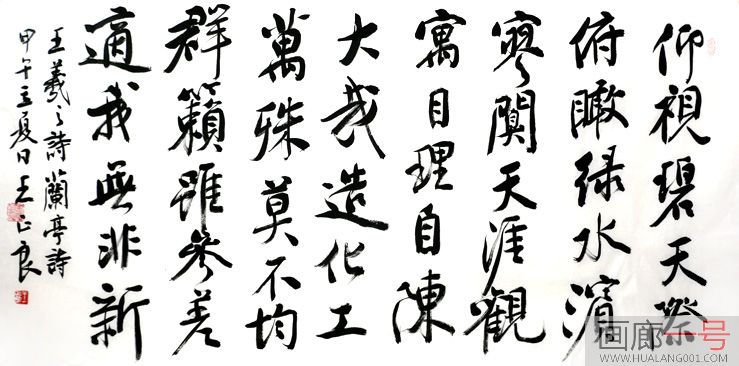 仰視碧天際
俯瞰緑水濱
寥闃天涯觀
寓目理自陳
大哉造化工
萬殊莫不均
群籟雖參差
適我無非新
王羲之詩蘭亭詩
甲午立夏日王正良
画廊一号
WWW.HUALANG001.COM